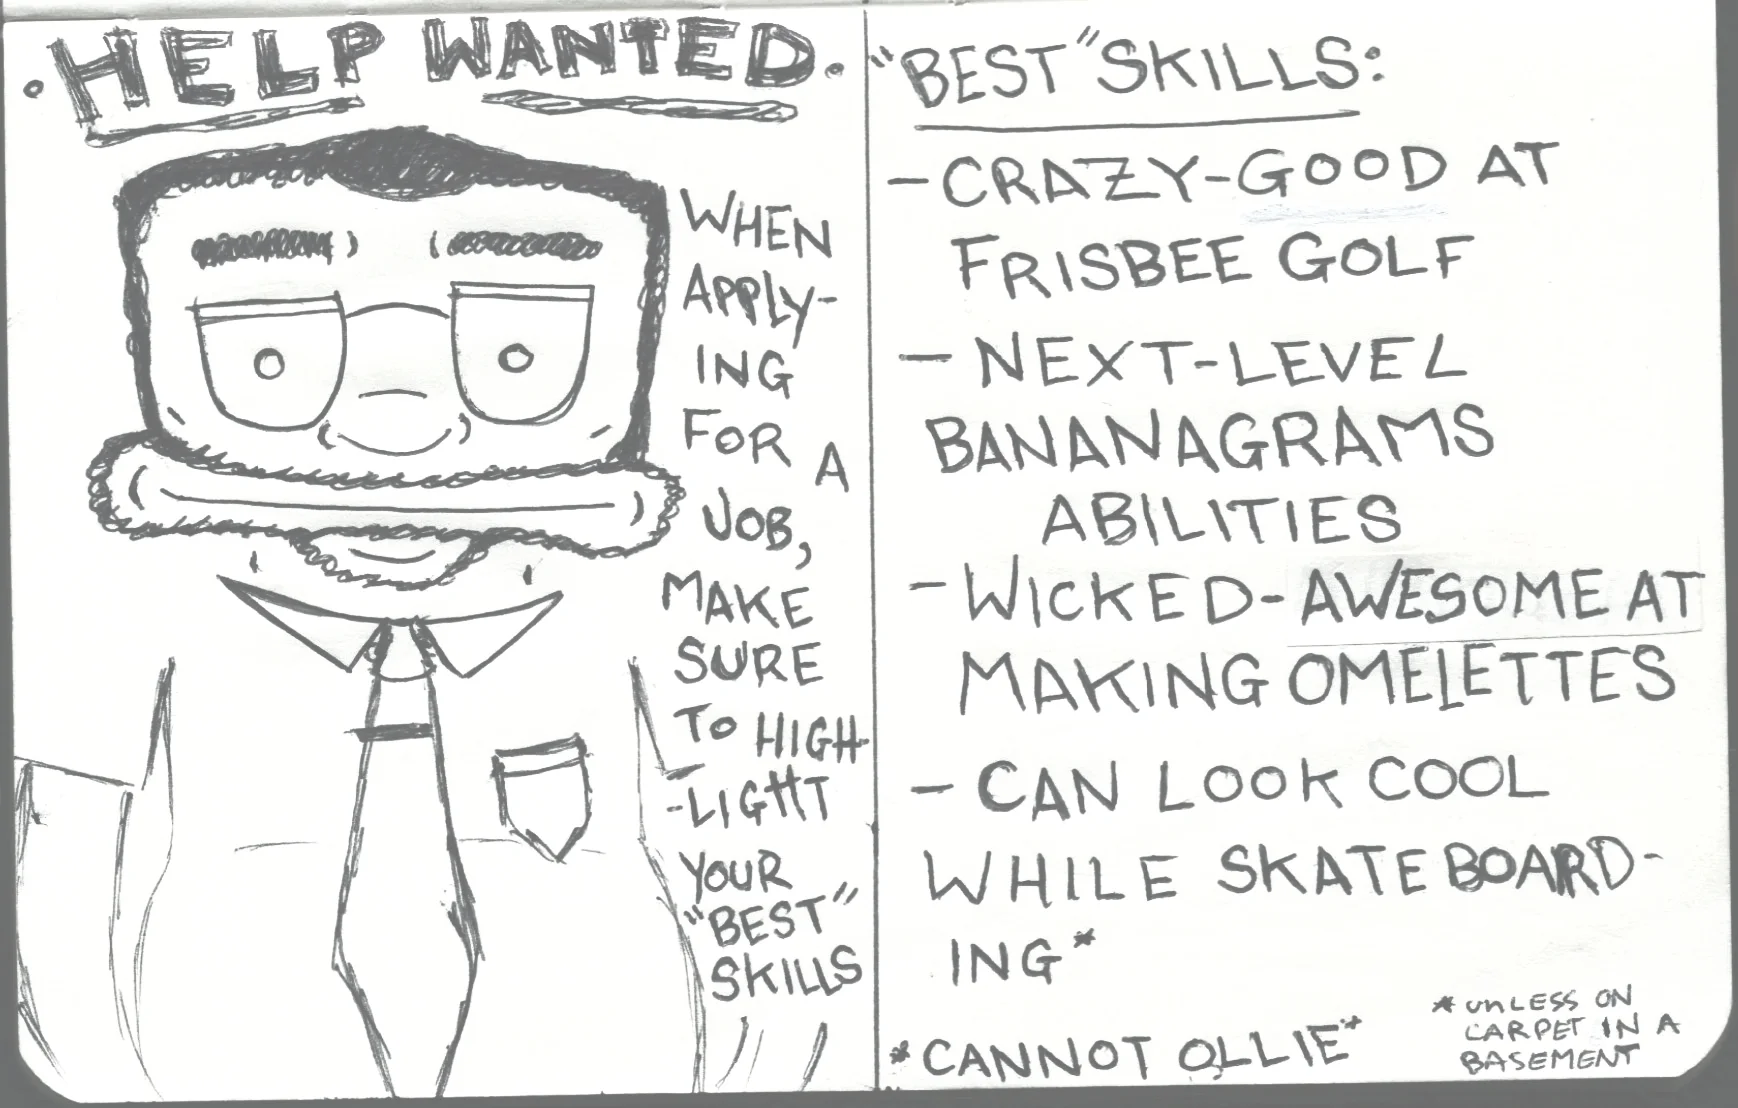 ·HELP WANTED.
WHEN
APPLY-
ING
FOR A
JOB,
MAKE
SURE
TO HIGH-
-LIGHT
YOUR
"BEST"
SKILLS
"BEST" SKILLS:
- CRAZY-GOOD AT
FRISBEE GOLF
- NEXT-LEVEL
BANANAGRAMS
ABILITIES
- WICKED-AWESOME AT
MAKING OMELETTES
- CAN LOOK COOL
WHILE SKATEBOARD-
ING*
*CANNOT OLLIE*
* UNLESS ON
CARPET IN A
BASEMENT